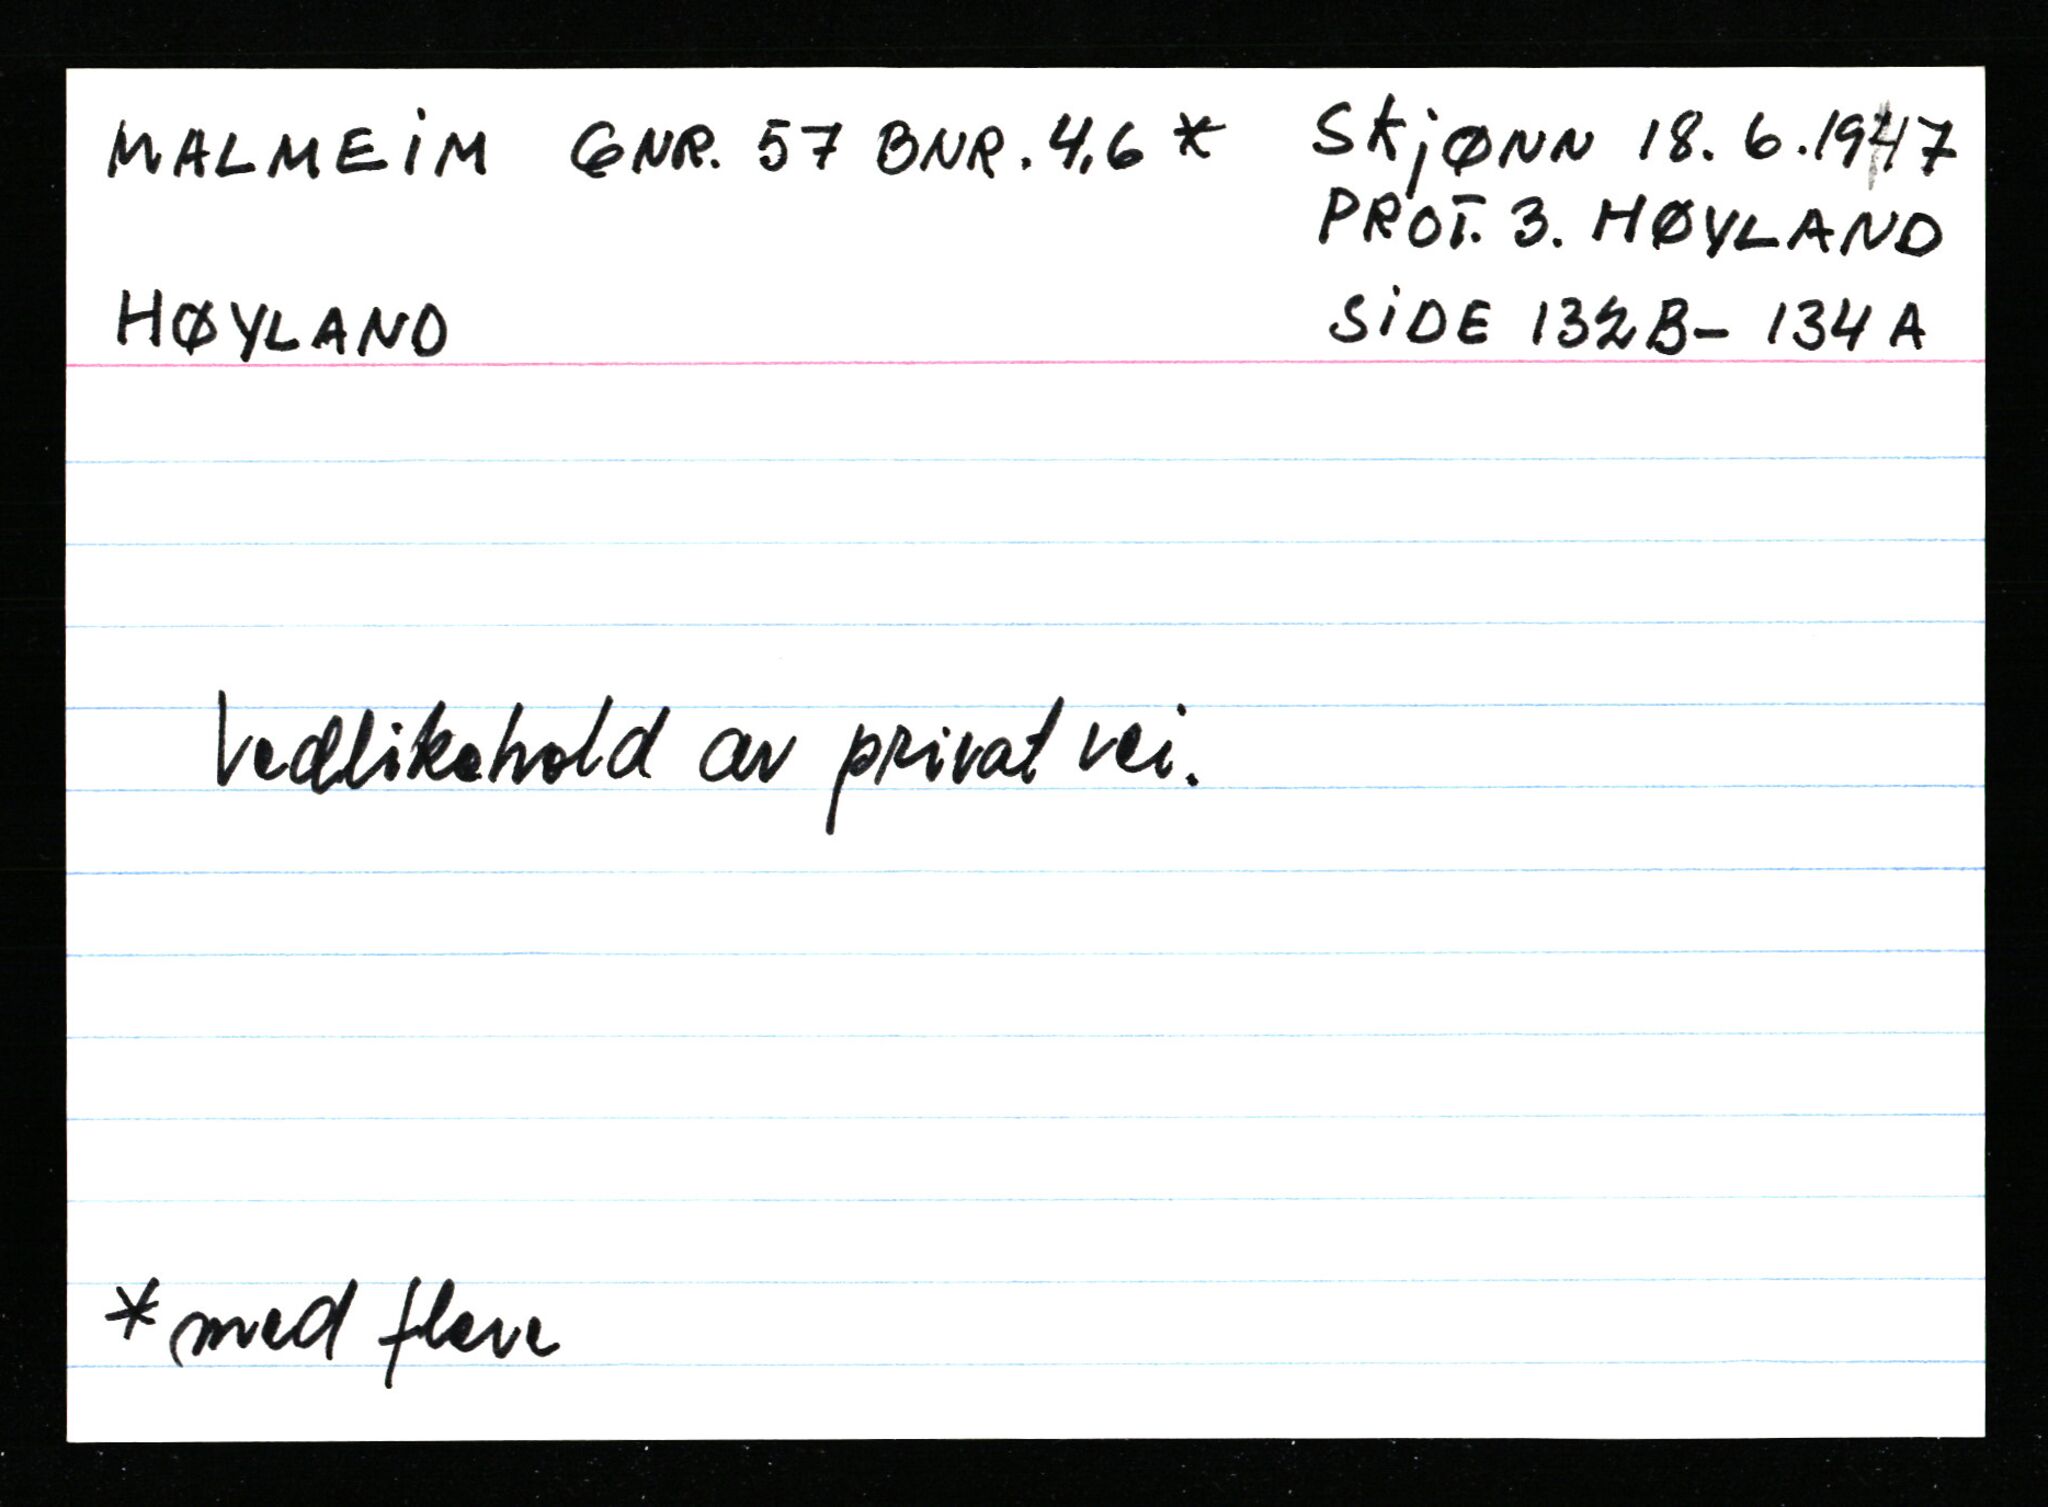 MALMEIM GNR. 57 BNR. 4,6 * SKJØNN 18. 6. 1947
PROT. 3. HØYLAND
HØYLAND SIDE 132B - 134A
Vedlikehold av privat vei.
* med flere